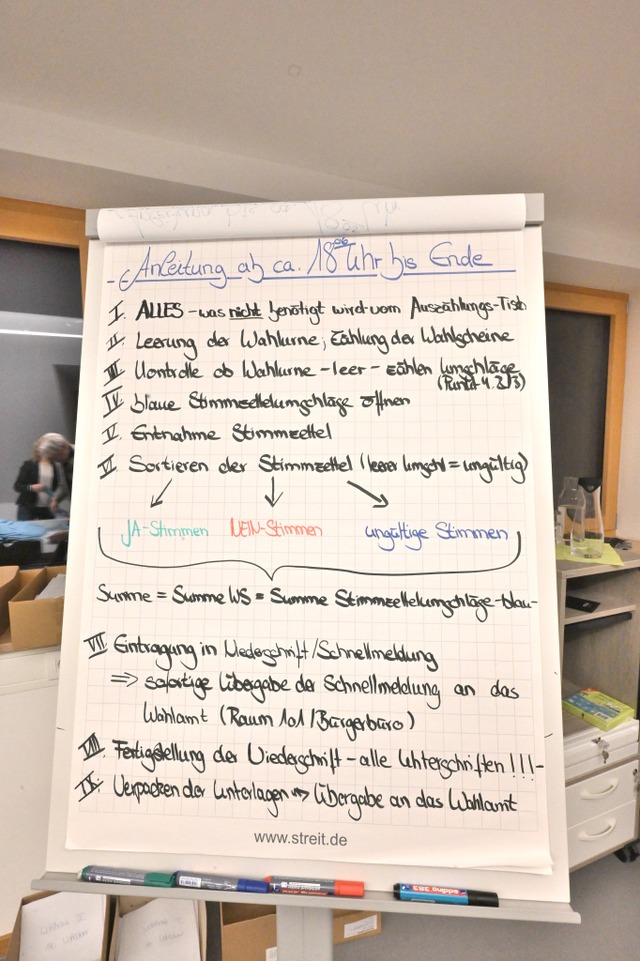 Anleitung ab ca. 18 00 Uhr bis Ende
I. ALLES - was nicht benötigt wird - vom Auszählungs-Tisch
II. Leerung der Wahlurne; Zählung der Wahlscheine
III. Kontrolle ob Wahlurne - leer - zählen Umschläge
(Punkt 4.2/3)
IV. blaue Stimmzettelumschläge öffnen
V. Entnahme Stimmzettel
VI. Sortieren der Stimmzettel (leerer Umschl = ungültig)
JA-Stimmen NEIN-Stimmen ungültige Stimmen
Summe = Summe WS = Summe Stimmzettelumschläge -blau-
VII. Eintragung in Niederschrift/Schnellmeldung
⇒ sofortige Übergabe der Schnellmeldung an das
Wahlamt (Raum 1.01/Bürgerbüro)
VIII. Fertigstellung der Niederschrift - alle Unterschriften!!! -
IX. Verpacken der Unterlagen ⇒ Übergabe an das Wahlamt
www.streit.de
edding 383